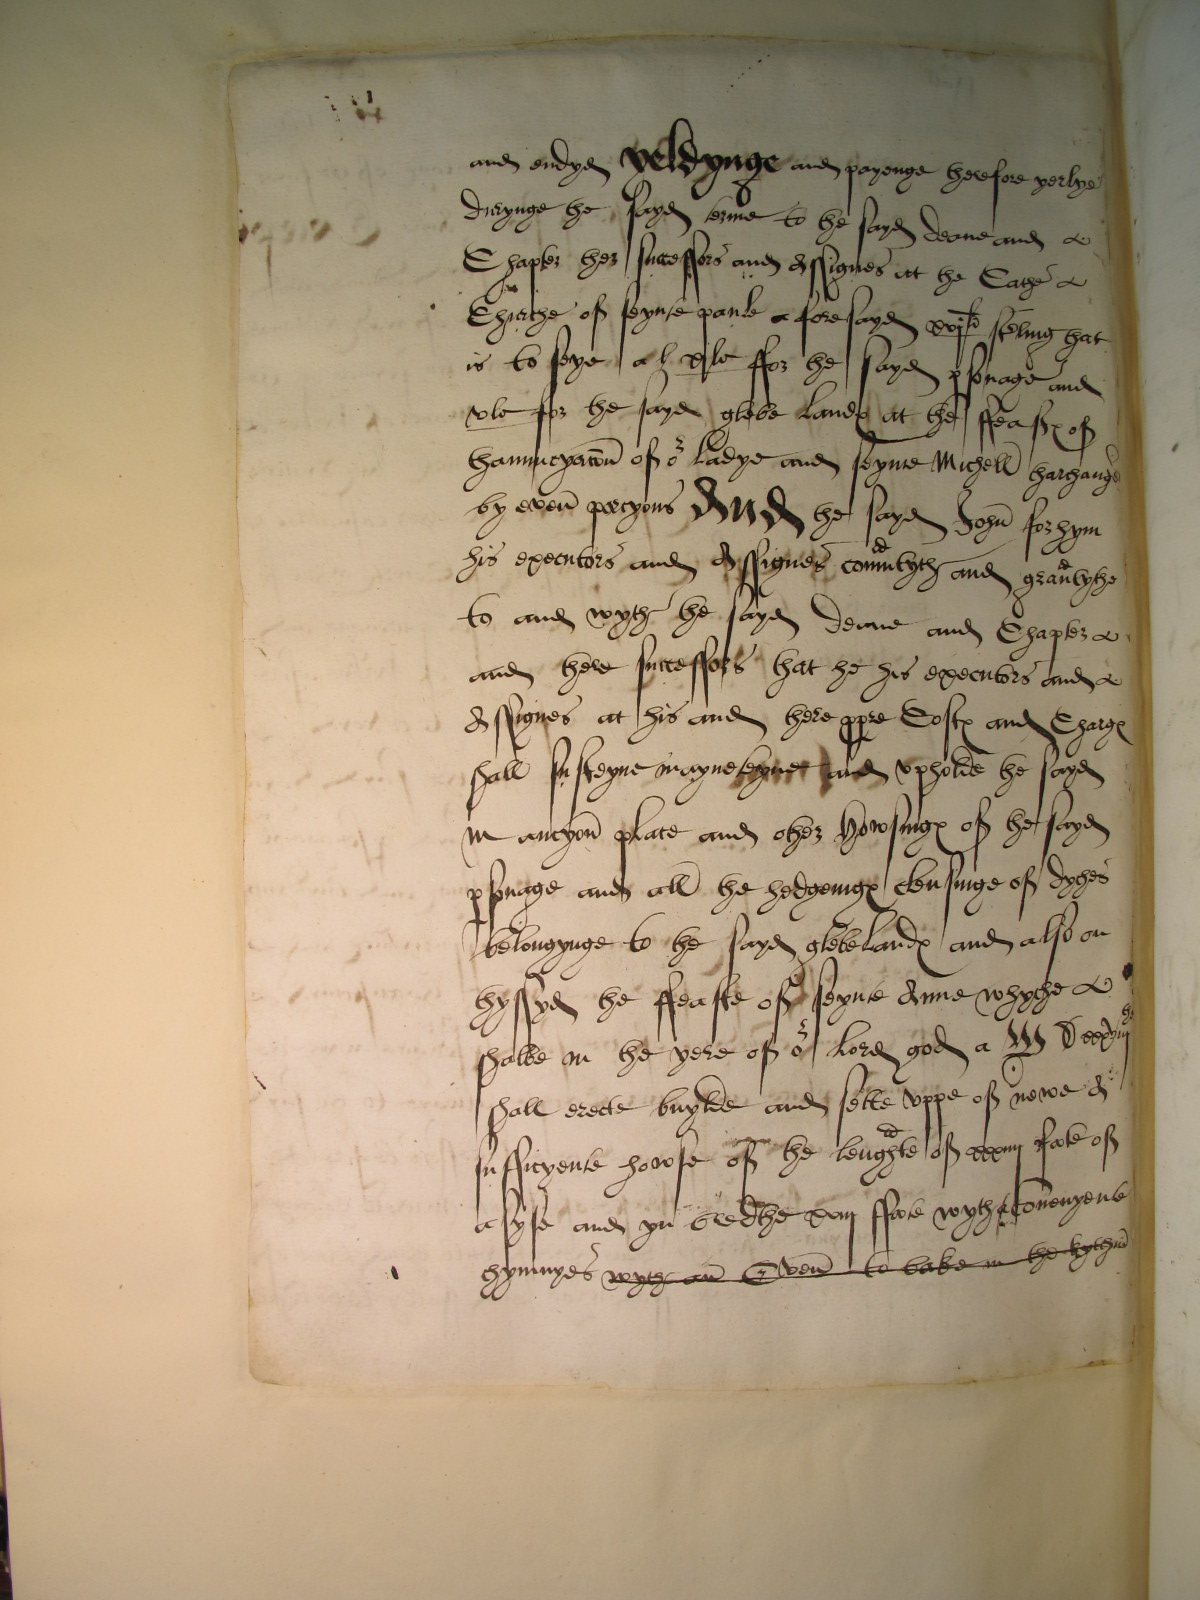 and endyd yeldynge and payenge herefore yerlye
durynge he sayd terme to he sayd deane and
Chapter her successors and Assignes at he Cathe
Chirche of seynte paule a foresayd sterling hat
is to seye for he sayd psonage and
vli for he sayd glebe land at he ffeast of
hannucyacion of or ladye and seynte Michell harchang
by even porcyons And he sayd John for hym
his executors and Assignes couuntyth and grauntythe
to and wyth he sayd deane and Chapter
and here successors hat he his executors and
Assignes at his and here ppre Cost and Charg
shall susteyne mayneteyne and vpholde he sayd
Mancyon place and oher howsing of he sayd
psonage and all he hedgeing clensinge of dyches
belongynge to he sayd glebe land and also on
hyssyd he ffeaste of seynte Anne whyche
shalbe in he yere of or lord god a M D
shall erecte buylde and sette vppe of newe A
sufficyente howse of he lenghte of xxxiiij foote of
a syse and yn bredthe xviij ffoote wyth convenyent
hymnyes wyth an Oven to bake in he kythin